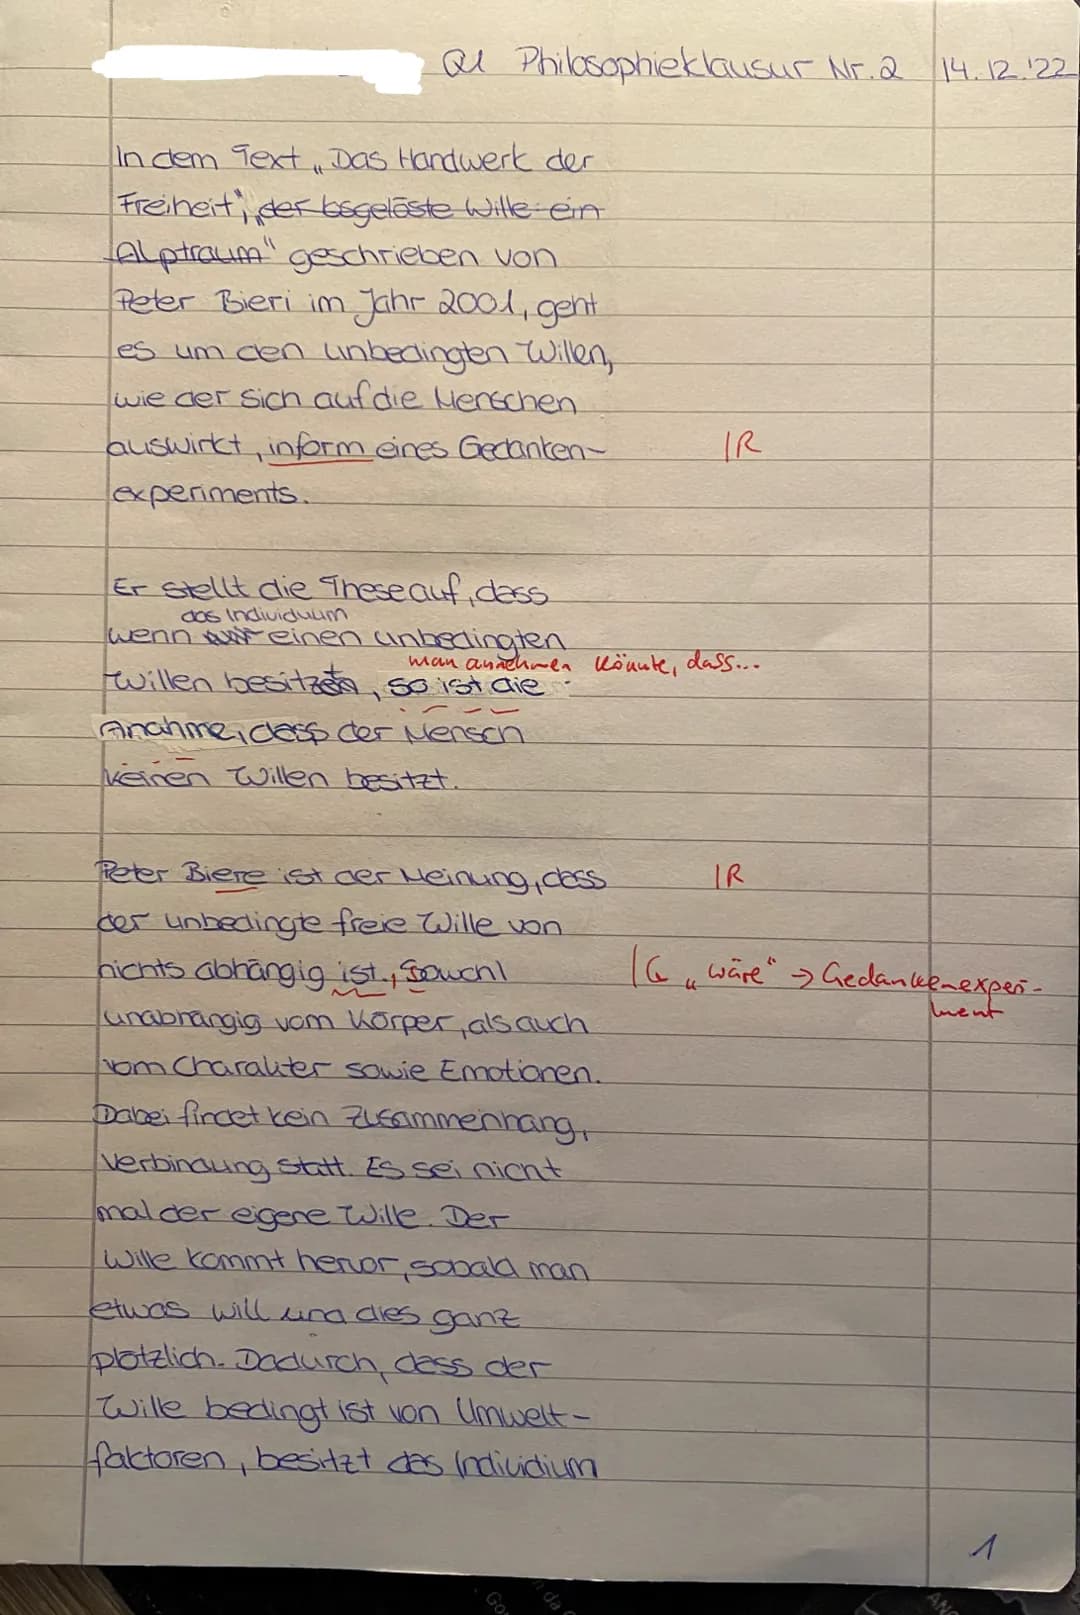 Q1 Philosophieklausur Nr. 2 14.12.'22
In dem Text „Das Handwerk der
Freiheit", „der losgelöste Wille-ein
Alptraum" geschrieben von
Peter Bieri im Jahr 2001, geht
es um den unbedingten Willen,
wie der sich auf die Menschen
auswirkt, inform eines Gedanken- | R
experiments.
Er stellt die These auf, dass
das Individuum
wenn wir einen unbedingten
man annehmen könnte, dass...
Willen besitzt, so ist die
Anahme, dass der Mensch
keinen Willen besitzt.
Peter Biere ist der Meinung, dass | R
der unbedingte freie Wille von
nichts abhängig ist, Sowohl | G „wäre" → Gedankenexperi-
ment
unabhängig vom Körper, als auch
vom Charakter sowie Emotionen.
Dabei findet kein Zusammenhang,
Verbindung statt. Es sei nicht
mal der eigene Wille. Der
Wille kommt hervor, sobald man
etwas will und dies ganz
plötzlich. Dadurch, dass der
Wille bedingt ist von Umwelt-
faktoren, besitzt das Individium
1